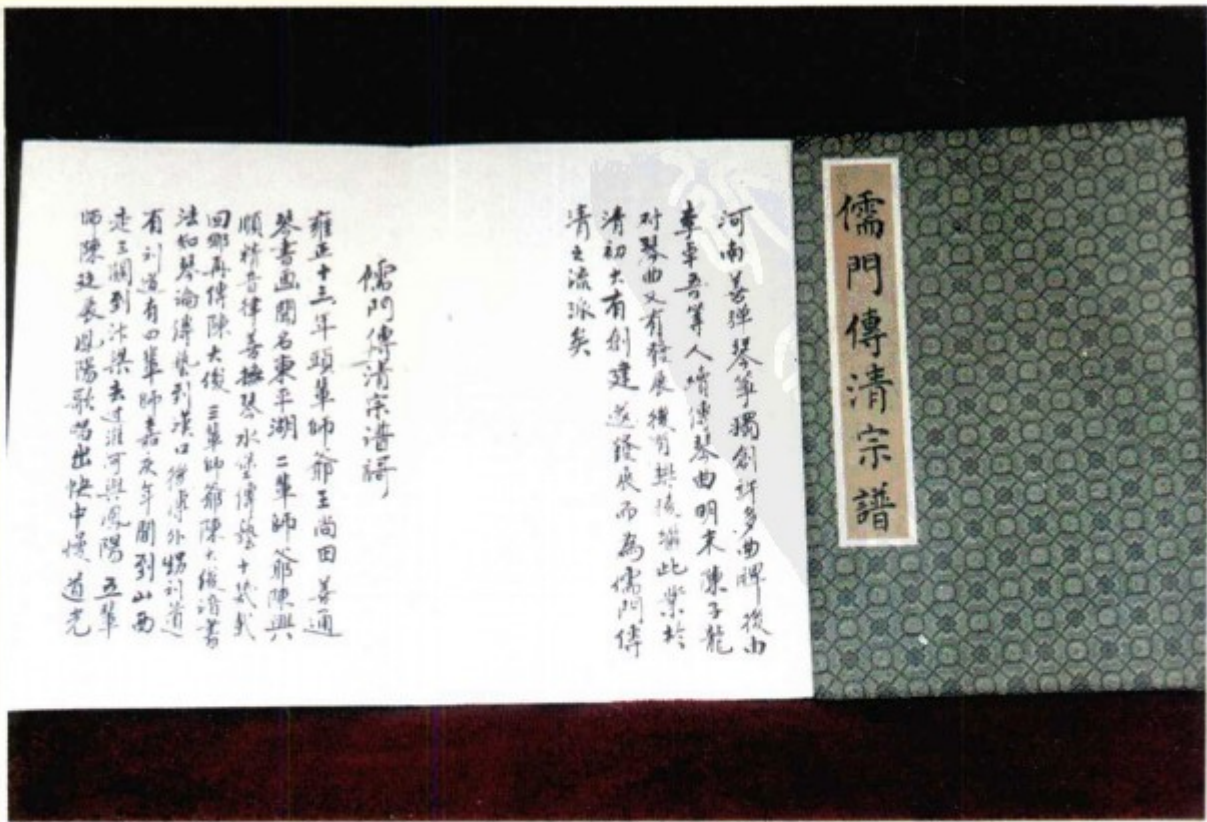 儒門傳清宗譜
河南善弹琴筝獨創許多曲牌後由
李卓吾等人増傳琴曲明末陳子龍
对琴曲又有發展後有 此柴於
清初大有創建遂發展而為儒門傳
清之流派矣
儒門傳清宗谱歌
雍正十三年頭輩師爺王尚田善通
琴書画聞名東平湖 二輩師爺陳興
順精音律善 琴水 傳藝十
回 再傳陳大俊 三輩師爺陳大俊 書
法和琴論傳藝到漢口 傳外甥刘道
有刘道有四輩師嘉庆年間到山西
走三關到汴梁去过淮河與鳳陽 五輩
師陳廷 鳳陽歌唱出快中慢 道光